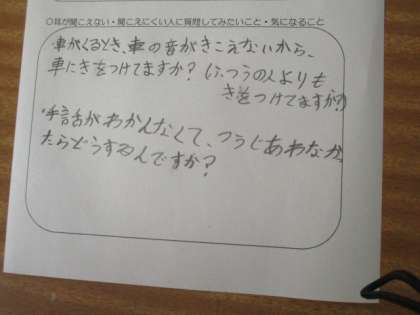 ○耳が聞こえない・聞こえにくい人に質問してみたいこと・気になること
車がくるとき、車の音がきこえないから、
車にきをつけてますか？(ふつうの人よりも
きをつけてますか?)
・手話がわかんなくて、つうじあわなか
たらどうするんですか？